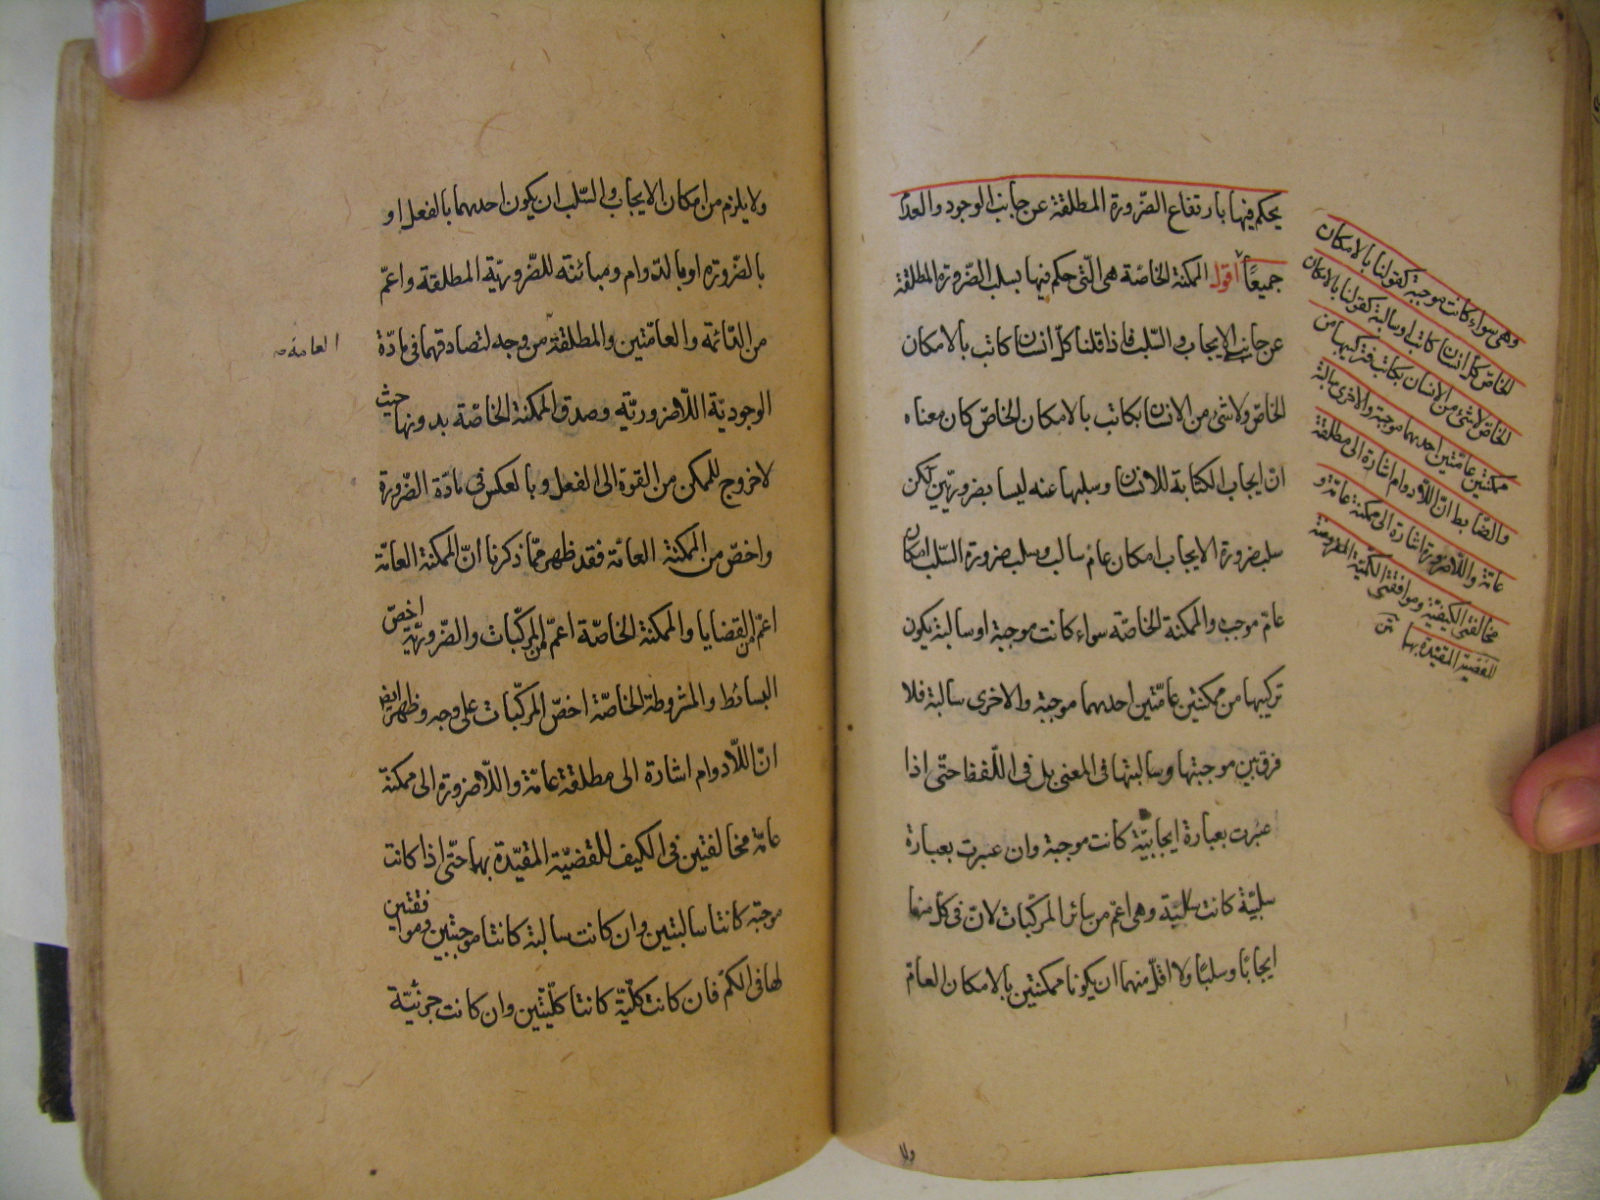 يحكم فيها بارتفاع الضّرورة المطلقة عن جانب الوجود والعدم
جميعًا أقول الممكنة الخاصّة هى الّتى حكم فيها بسلب الضّرورة المطلقة
عن جانب الإيجاب والسّلب فاذا قلنا كلّ انسان كاتب بالامكان
الخاصّ ولا شئ من الانسان بكاتب بالامكان الخاصّ كان معناه
انّ ايجاب الكتابة للانسان وسلبها عنه ليسا بضروريّين لكن
سلب ضرورة الايجاب امكان عامّ سالب وسلب ضرورة السّلب امكان
عامّ موجب والممكنة الخاصّه سواء كانت موجبة او سالبة يكون
تركيبها من ممكنتين عامّتين احدىهما موجبة والاخرى سالبة فلا
فرق بين موجبتها وسالبتها فى المعنى بل فى اللّفظ حتّى اذا
عبرت بعبارة ايجابيّة كانت موجبة وان عبرت بعبارة
سلبيّة كانت سالبة وهى اعمّ من سائر المركّبات لانّ فى كلّ منهما
ايجابًا وسلبًا ولا اقلّ منهما ان يكونا ممكنتين بالامكان العامّ
وهى سواء كانت موجبة كقولنا بالامكان
الخاصّ كلّ انسان كاتب او سالبة كقولنا بالامكان
الخاصّ لا شئ من الانسان بكاتب فتركيبها من
ممكنتين عامّتين احدىهما موجبة والاخرى سالبة
والضّابط انّ اللّادوام اشارة الى مطلقة
عامّة واللّاضرورة اشارة الى ممكنة عامّة و
مخالفتى الكيفيّة وموافقتى الكميّة
للقضيّة المقيّدة بهما
ولا
ولا يلزم من امكان الايجاب والسّلب ان يكون احدهما بالفعل او
بالضّرورة او بالدّوام ومبائنة للضّروريّة المطلقة واعمّ
من الدّائمة والعامّتين والمطلقة من وجه لتصادقهما فى مادّة
العامة
الوجوديّة اللّاضروريّة وصدق الممكنة الخاصّة بدونها حيث
لا خروج للممكن من القوة الى الفعل وبالعكس فى مادّة الضّرورة
واخصّ من الممكنة العامّة فقد ظهر ممّا ذكرنا انّ الممكنة العامّة
اعمّ من القضايا والممكنة الخاصّة اعمّ من المركّبات والضّروريّة اخصّ
البسائط والمشروطة الخاصّة اخصّ المركّبات على وجه وظهر ايضا
انّ اللّادوام اشارة الى مطلقة عامّة واللّاضرورة الى ممكنة
عامّة مخالفتين فى الكيف للقضيّة المقيّدة بهما حتّى اذا كانت
موجبة كانتا سالبتين وان كانت سالبة كانتا موجبتين وموافقتين
لها فى الكمّ فان كانت كلّيّة كانتا كلّيّتين وان كانت جزئيّة